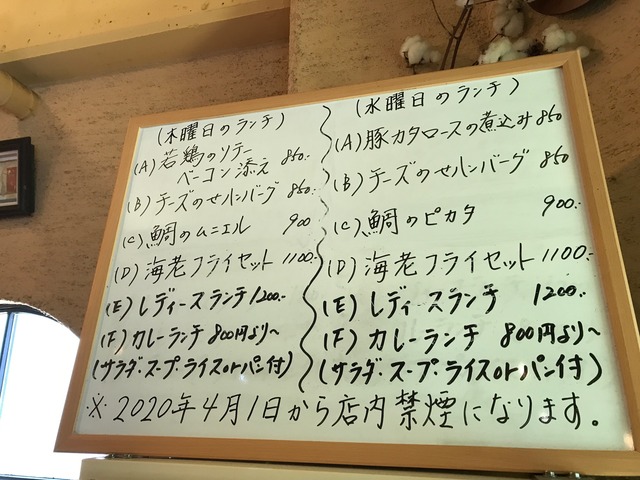 (木曜日のランチ)
(A) 若鶏のソテー
ベーコン添え 850.-
(B) チーズのせハンバーグ 850.-
(C) 鯛のムニエル 900
(D) 海老フライセット 1100.-
(E) レディースランチ 1200.-
(F) カレーランチ 800円より〜
(サラダ・スープ・ライスorパン付)
(水曜日のランチ)
(A) 豚カタロースの煮込み 850
(B) チーズのせハンバーグ 850
(C) 鯛のピカタ 900.-
(D) 海老フライセット 1100.-
(E) レディースランチ 1200.-
(F) カレーランチ 800円より〜
(サラダ・スープ・ライスorパン付)
※ 2020年4月1日から店内禁煙になります。